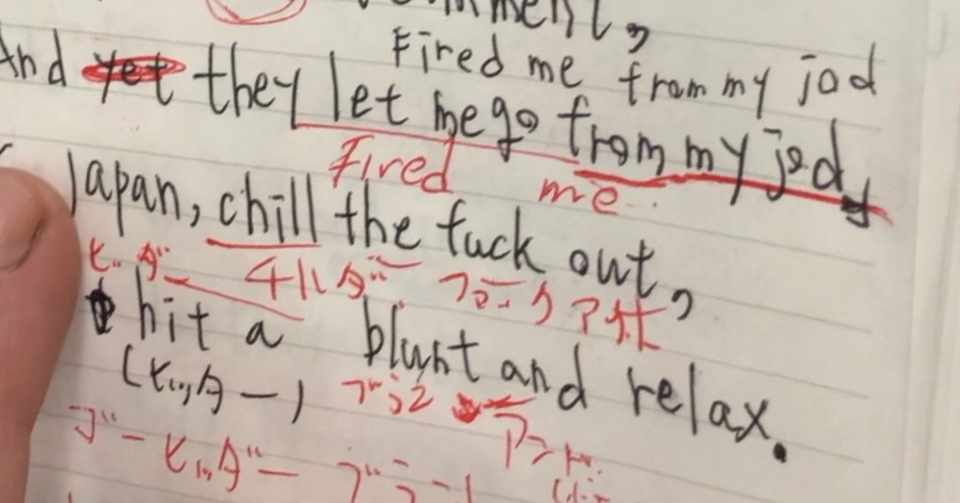 Fired me from my jod
And yet they let me go from my jod,
Fired me
Japan, chill the fuck out,
ヒッダー チルダ ファーックアウ
hit a blunt and relax.
(ヒッター) ブラ
ゴーヒッダー